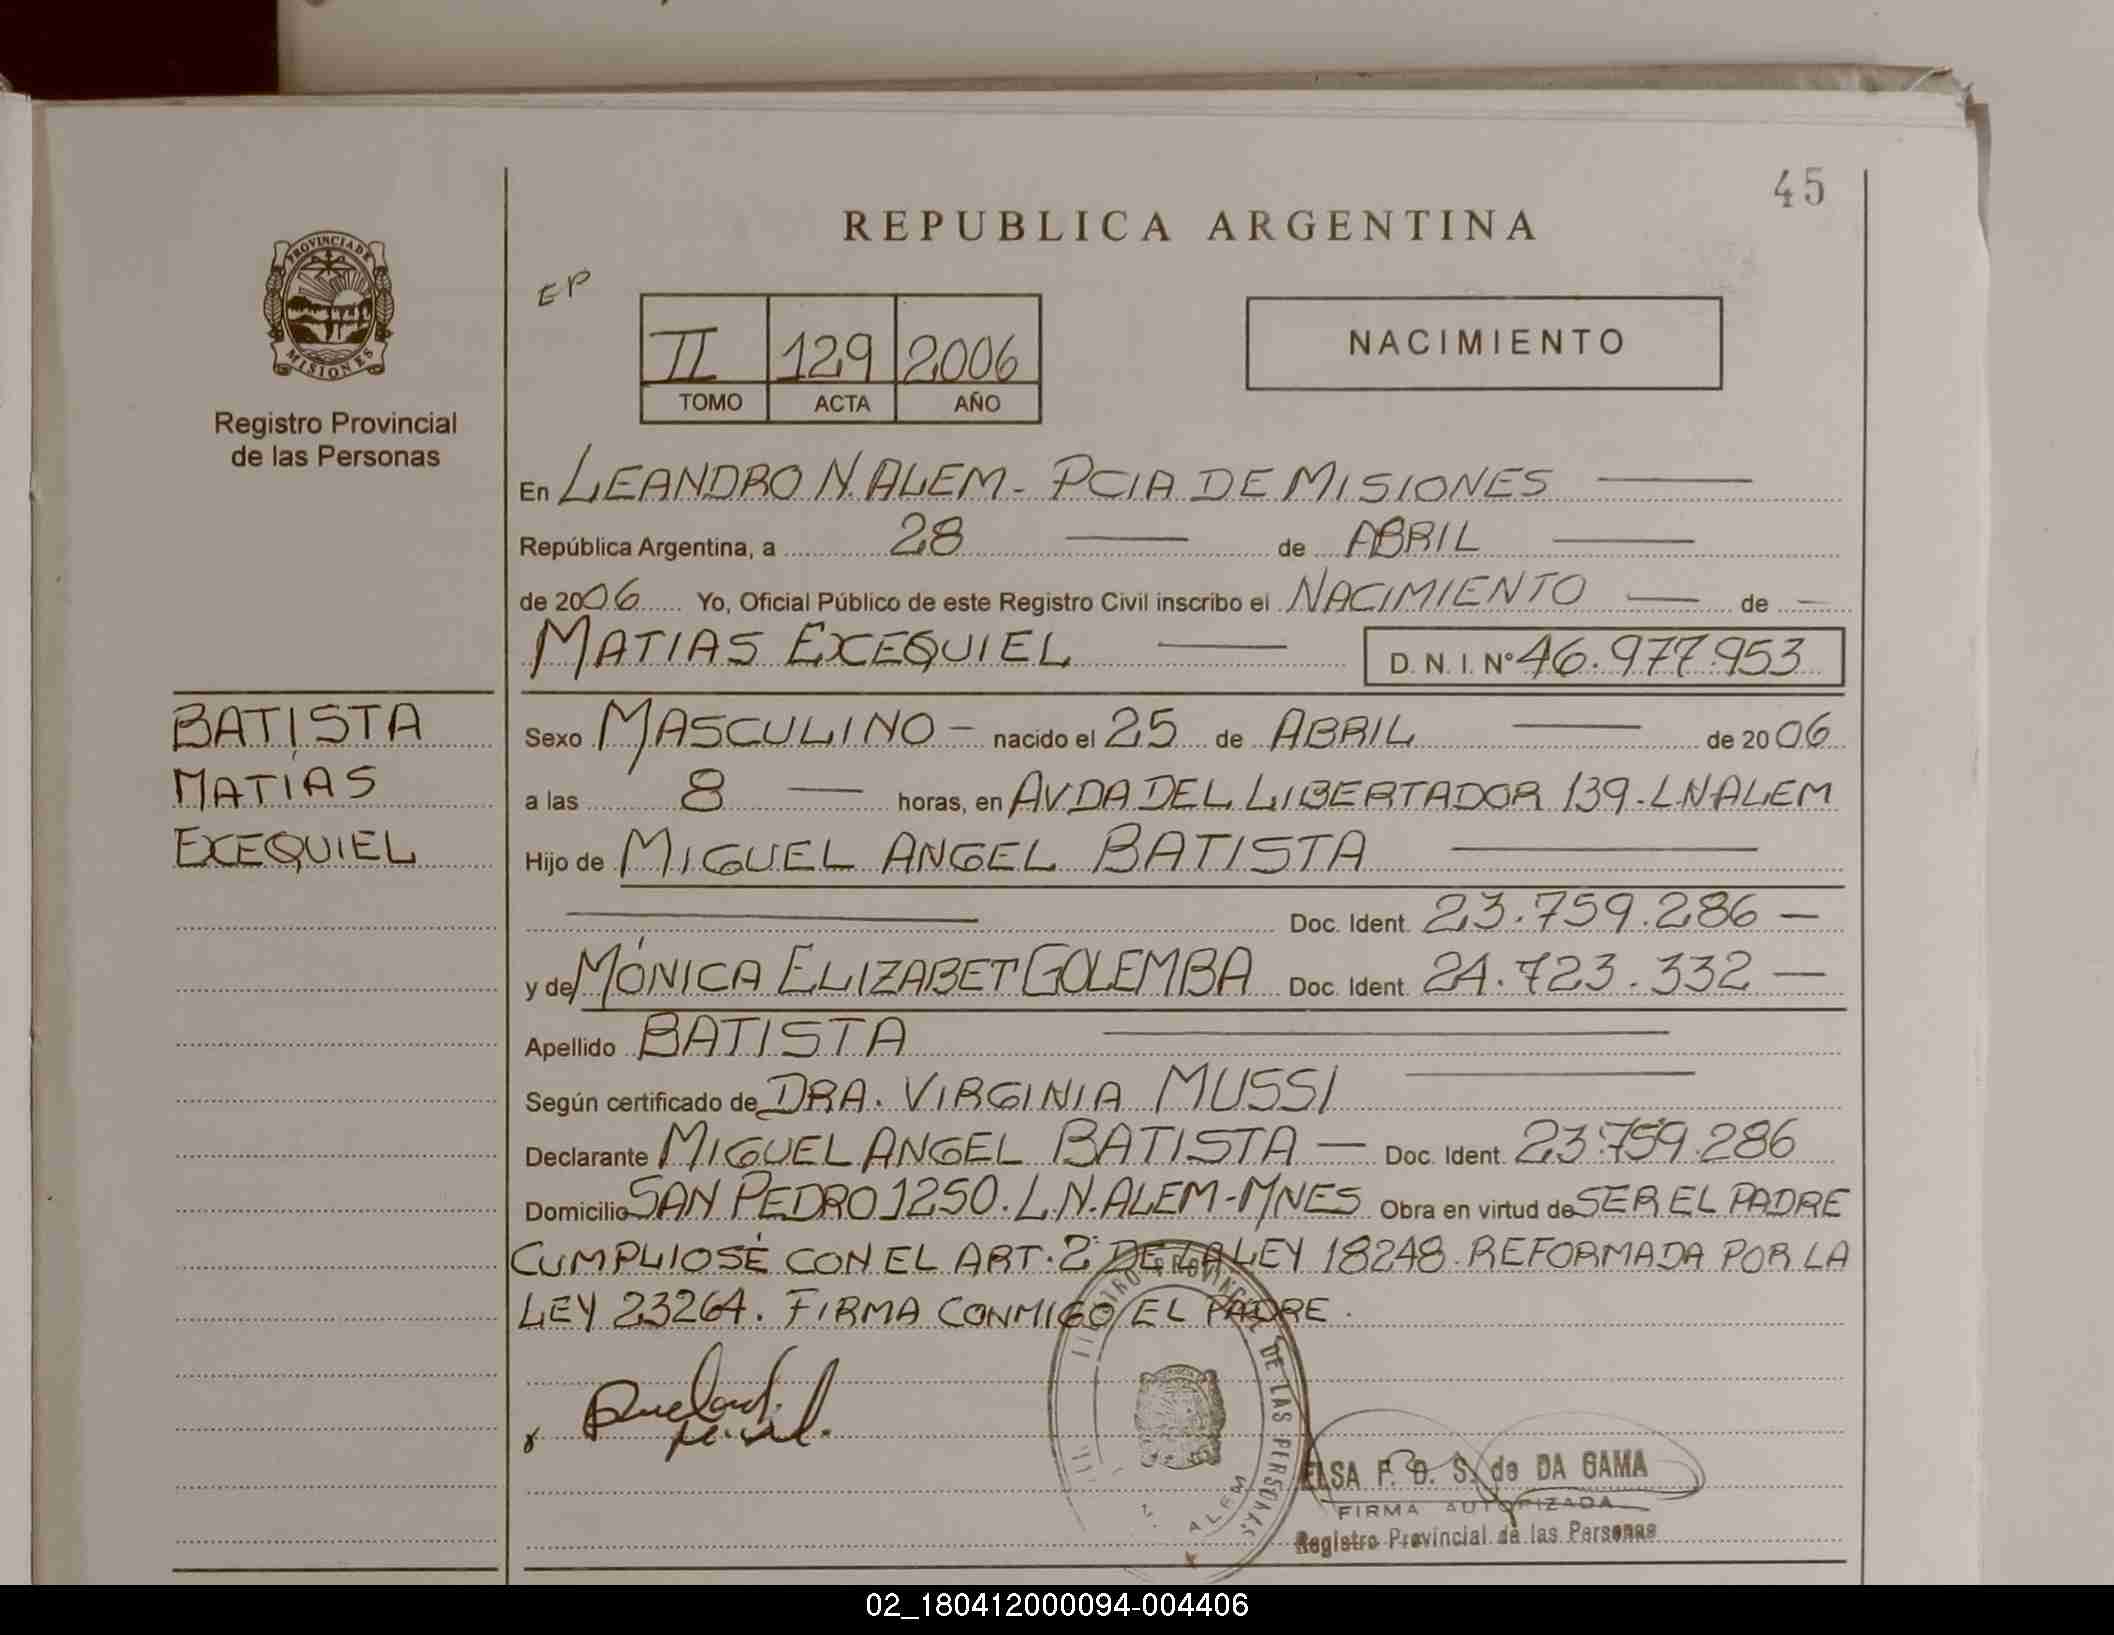 45
REPUBLICA ARGENTINA
PROVINCIA DE
MISIONES
Registro Provincial
de las Personas
EP
II 129 2006
TOMO ACTA AÑO
NACIMIENTO
En LEANDRO N. ALEM - PCIA DE MISIONES
República Argentina, a 28 de ABRIL
de 2006 Yo, Oficial Público de este Registro Civil inscribo el NACIMIENTO de
MATIAS EXEQUIEL D. N. I. Nº 46.977.953
BATISTA
MATÍAS
EXEQUIEL
Sexo MASCULINO - nacido el 25 de ABRIL de 2006
a las 8 horas, en AVDA DEL LIBERTADOR 139 - L N ALEM
Hijo de MIGUEL ANGEL BATISTA
Doc. Ident. 23.759.286 -
y de MÓNICA ELIZABET GOLEMBA Doc. Ident. 24.723.332 -
Apellido BATISTA
Según certificado de DRA. VIRGINIA MUSSI
Declarante MIGUEL ANGEL BATISTA - Doc. Ident. 23.759.286
Domicilio SAN PEDRO 1250. L.N. ALEM - MNES Obra en virtud de SER EL PADRE
CUMPLIOSÉ CON EL ART. 2º DE LA LEY 18248 REFORMADA POR LA
LEY 23264. FIRMA CONMIGO EL PADRE.
PROVINCIAL DE LAS PERSONAS
ALEM
ELSA F. D. S. de DA GAMA
FIRMA AUTORIZADA
Registro Provincial de las Personas
02_180412000094-004406